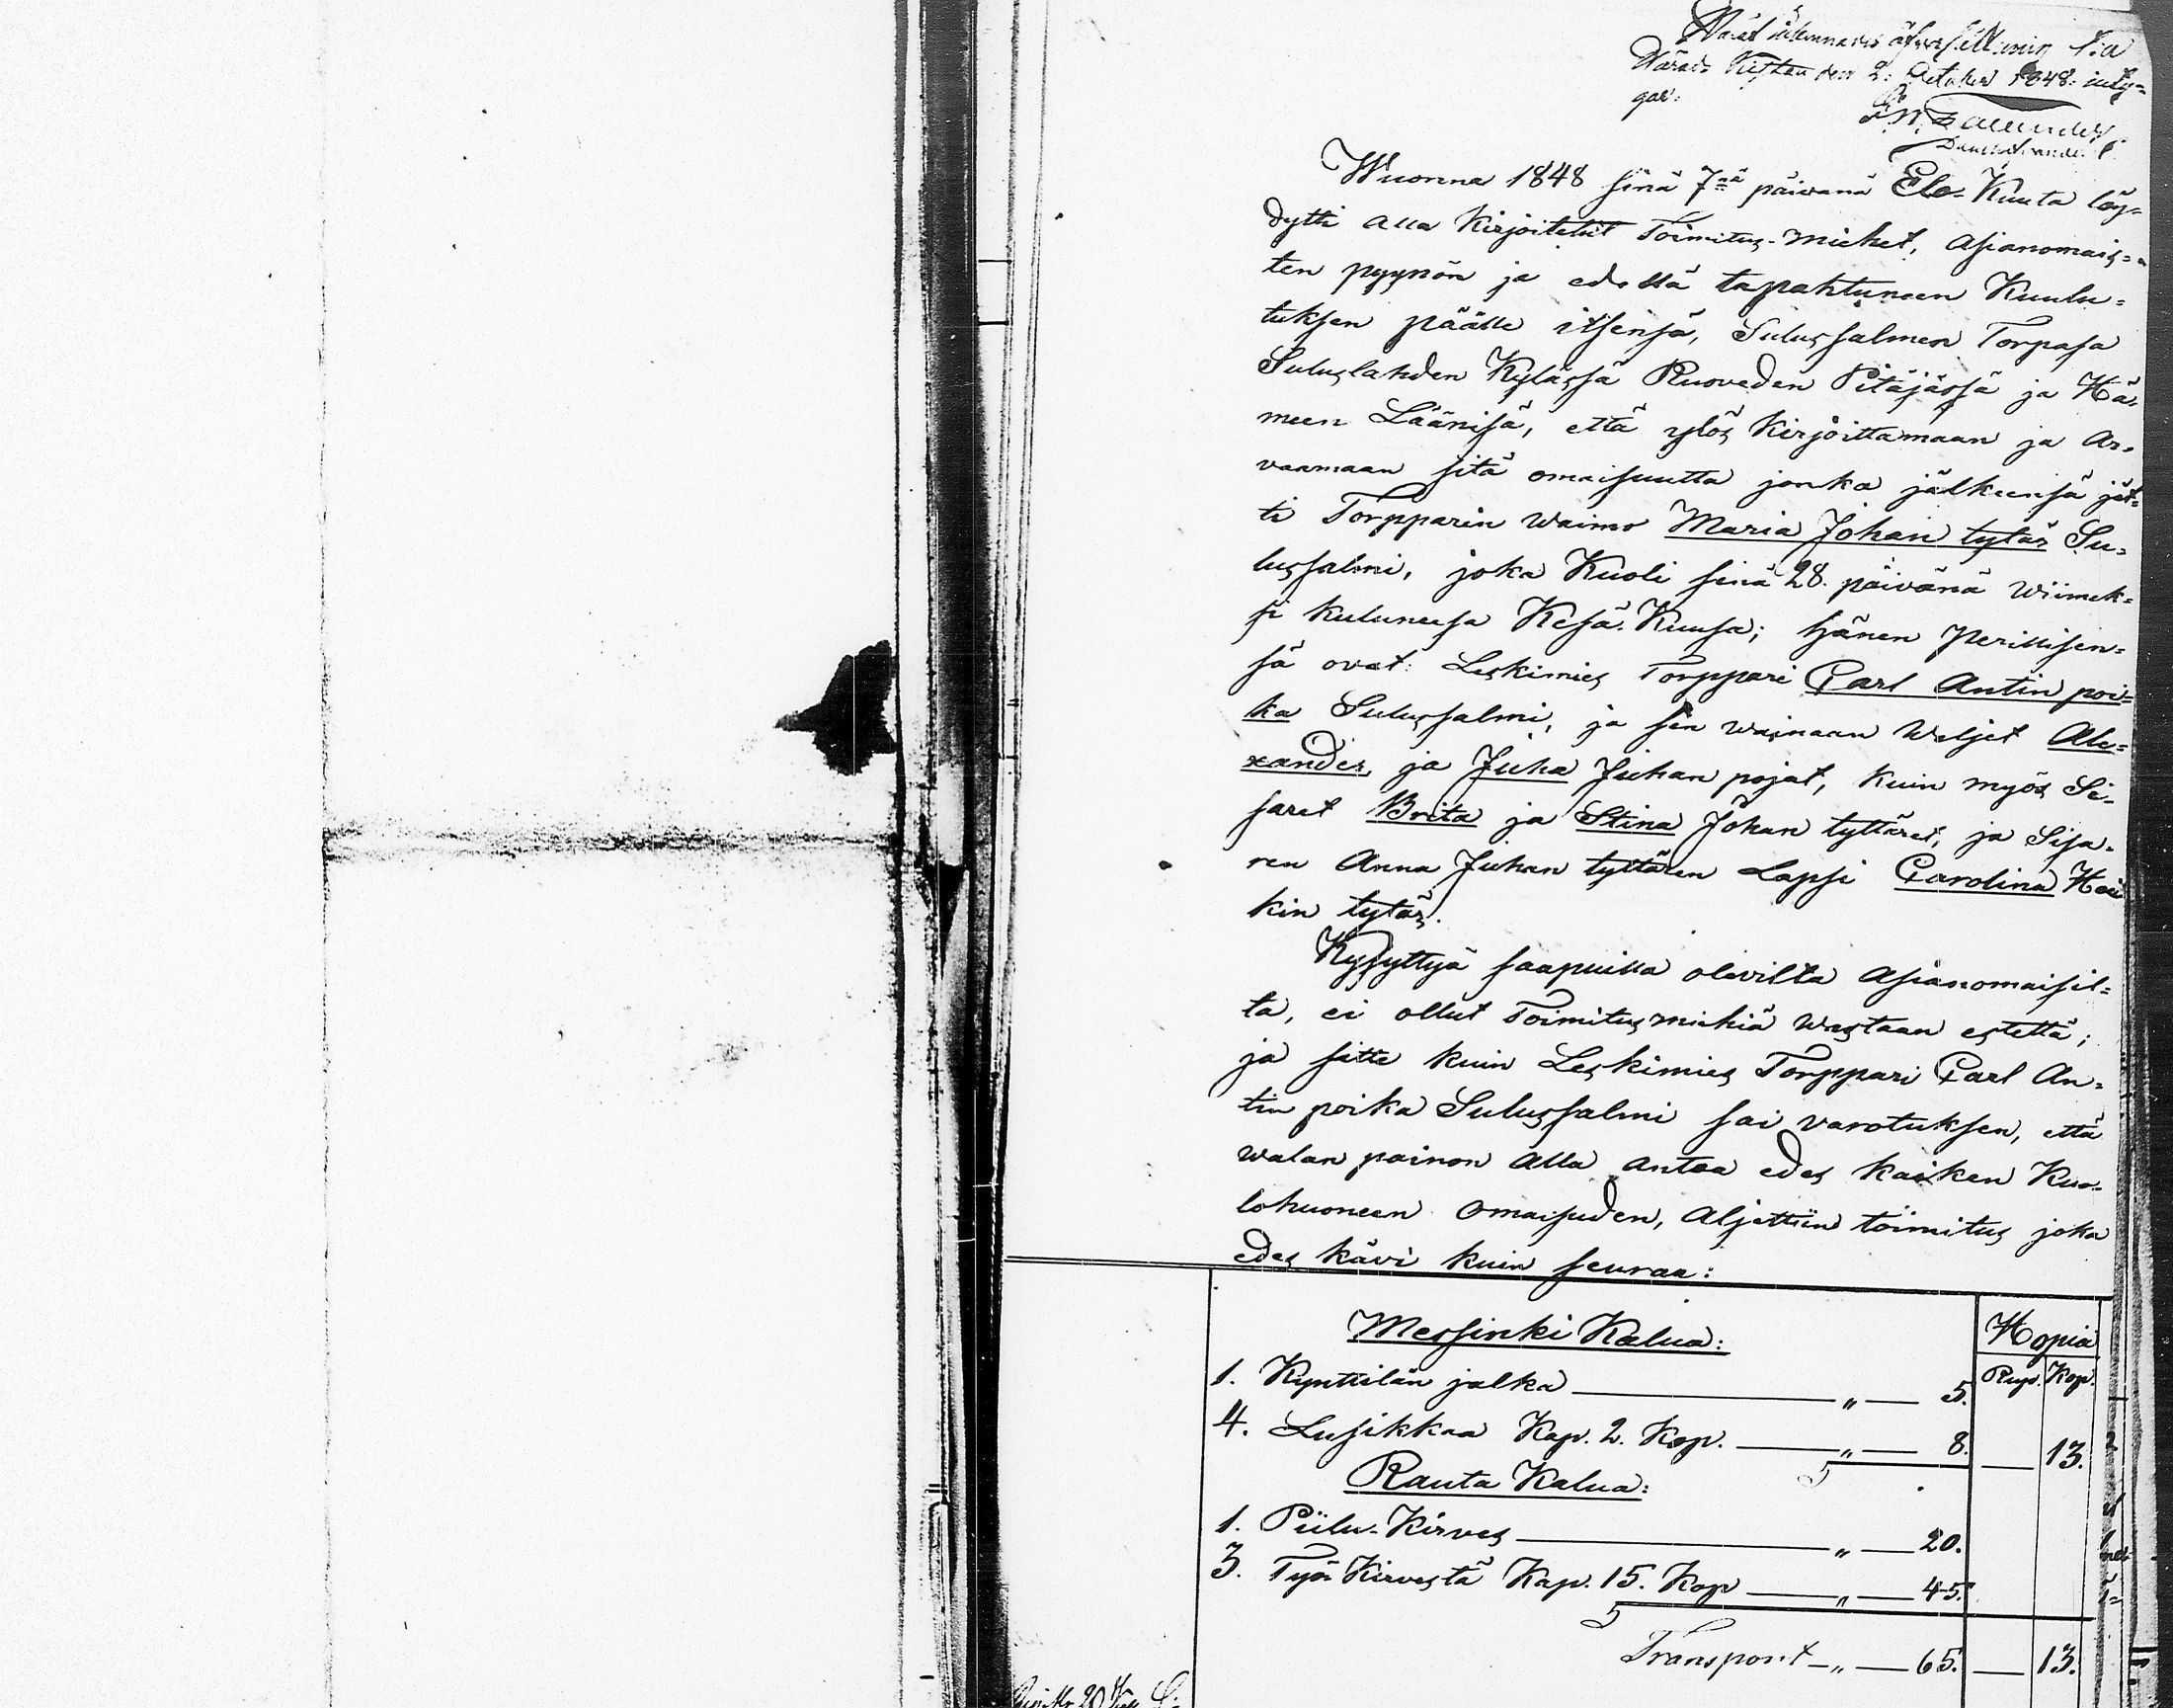 Wärdo den 2. October 1848. inty=
gar:
Wuonna 1848 sinä 7nä päivänä Elo-Kuuta löy=
dytti alla Kirjoitetut Toimitus-miehet, asianomais=
ten pyynön ja edellä tapahtuneen Kuulu=
tuksen päälle itsensä, Sulussalmen Torpasa
Suluslahden Kylässä Ruoveden Pitäjässä ja Hä=
meen Läänisä, että ylös Kirjoittamaan ja ar=
vaamaan sitä omaisuutta jonka jälkeensä jät=
ti Torpparin waimo Maria Johan tytär Su=
lussalmi, joka Kuoli sinä 28. päivänä wiimek=
si kuluneesa Kesä-Kuusa; hänen perillisen=
sä ovat: Leskimies Torppari Carl Antin poi=
ka Sulussalmi, ja sen wainaan weljet Ale=
xander, ja Juha Juhan pojat, kuin myös Si=
saret Brita ja Stina Johan tyttäret, ja Sisa=
ren Anna Juhan tyttären Lapsi Carolina Hei
kin tytär.
Kysyttyä saapuilla olevilta asianomaisil=
ta, ei ollut Toimitusmiehiä wastaan estettä;
ja sitte kuin Leskimies Torppari Carl An=
tin poika Sulussalmi sai varotuksen, että
walan painon alla antaa edes kaiken Kuo=
lohuoneen omaisuden, aljettiin toimitus joka
edes kävi kuin seuraa:
Messinki Kalua: Hopia
Rup. Kop.
1. Kynttilän jalka — „ — 5.
4. Lusikkaa Kap. 2. Kop. — „ — 8. — 13.
Rauta Kalua:
1. Piilu-Kirves — „ — 20.
3. Työ Kirvestä Kap. 15. Kop — „ — 45.
Transport — „ — 65. — 13.